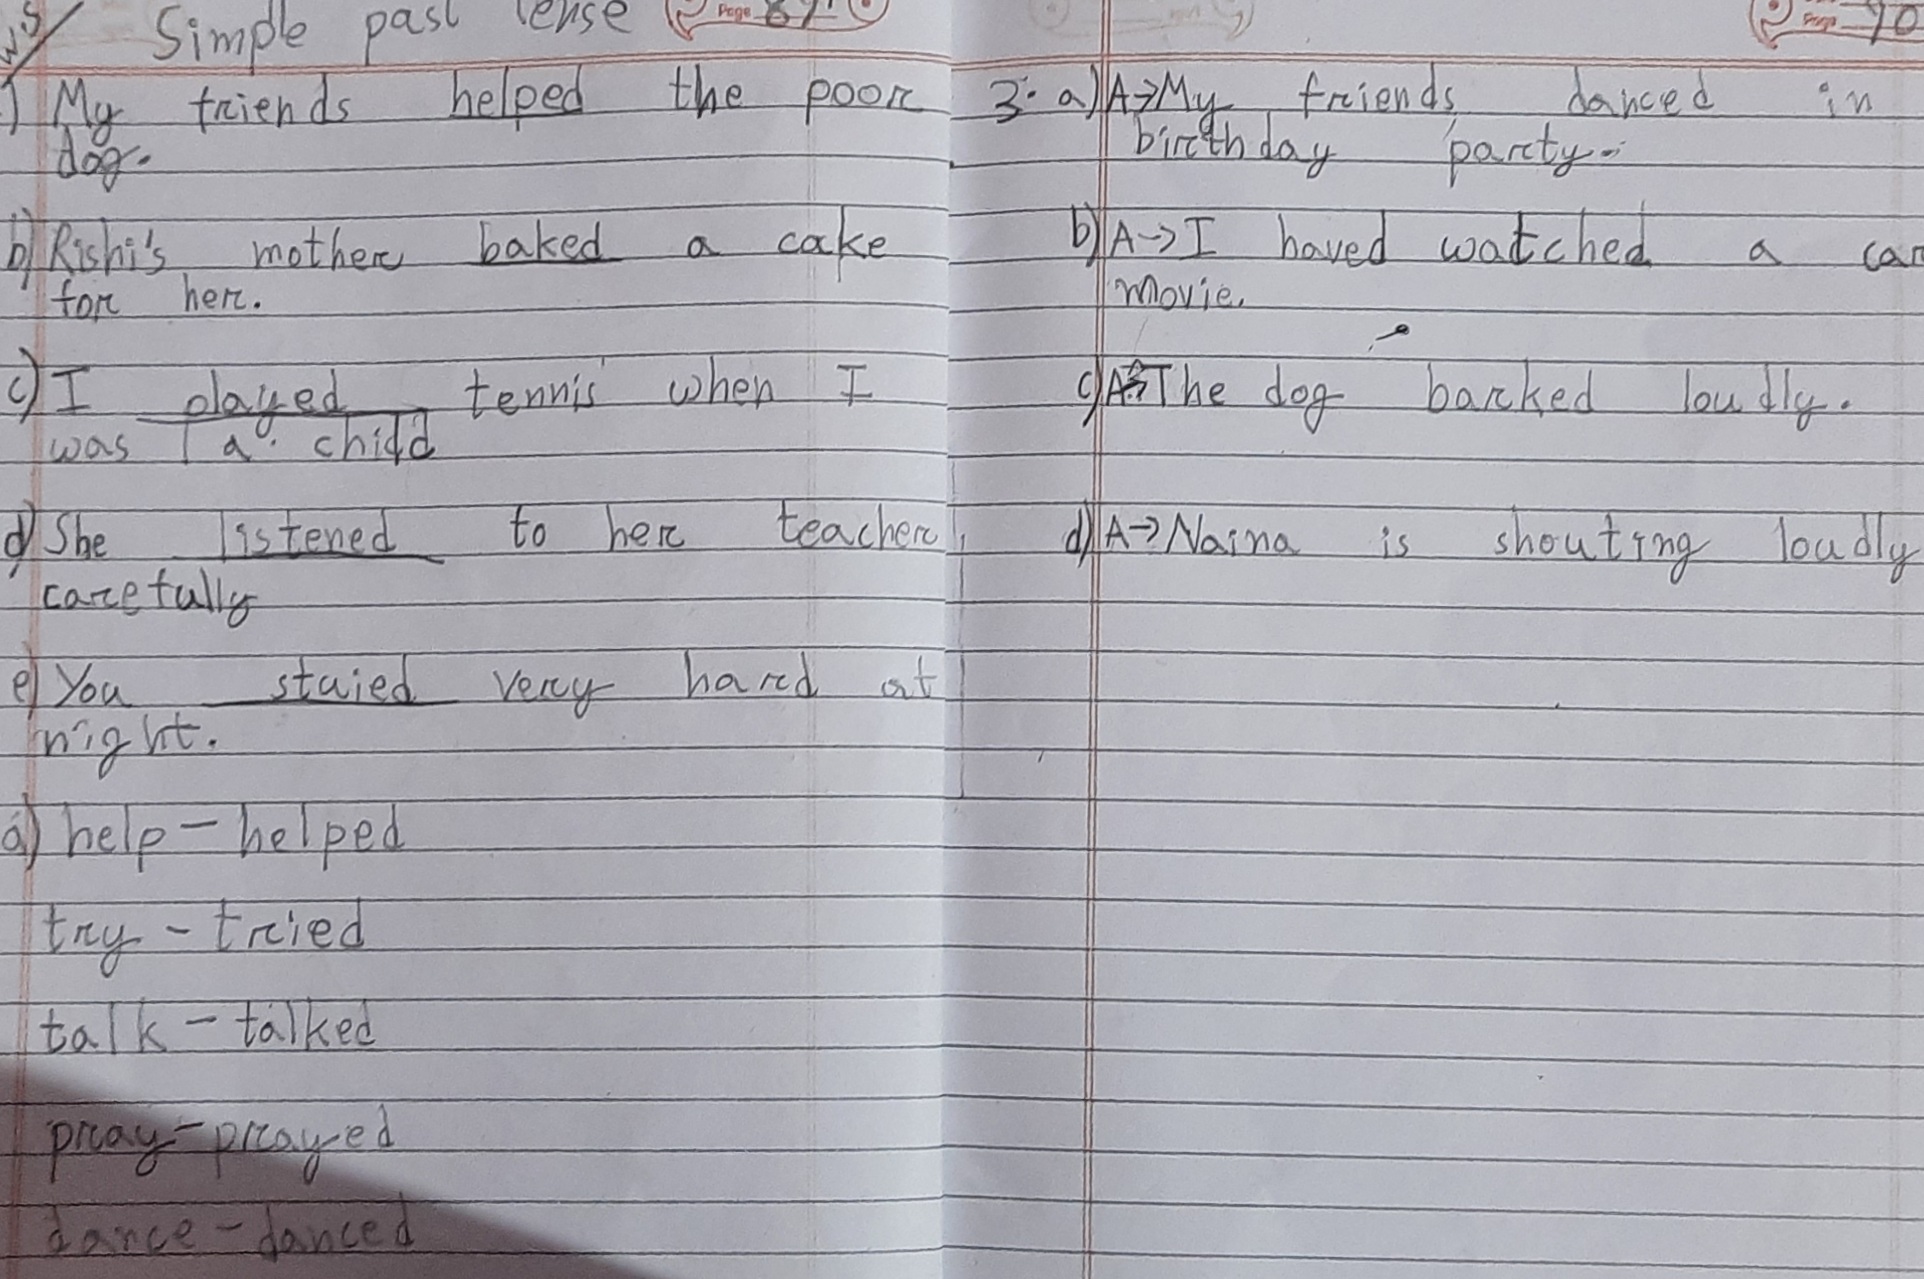 W.S
Simple past tense
Page 89
) My friends helped the poor
dog.
b) Rishi's mother baked a cake
for her.
c) I played tennis when I
was a child
d) She listened to her teacher
carefully
e) You staied very hard at
night.
a) help - helped
try - tried
talk - talked
pray - prayed
dance - danced
Page 90
3. a) A→ My friends danced in
birthday party.
b) A→ I haved watched a car
movie.
c) A→ The dog barked loudly.
d) A→ Naina is shouting loudly